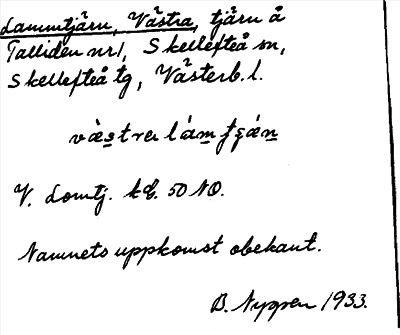 Lammtjärn, Västra, tjärn å
Talliden nr 1, Skellefteå sn,
Skellefteå tg, Västerb. l.
V. Lomtj. k bl. 50 NO.
Namnets uppkomst obekant.
B. Nygren 1933.